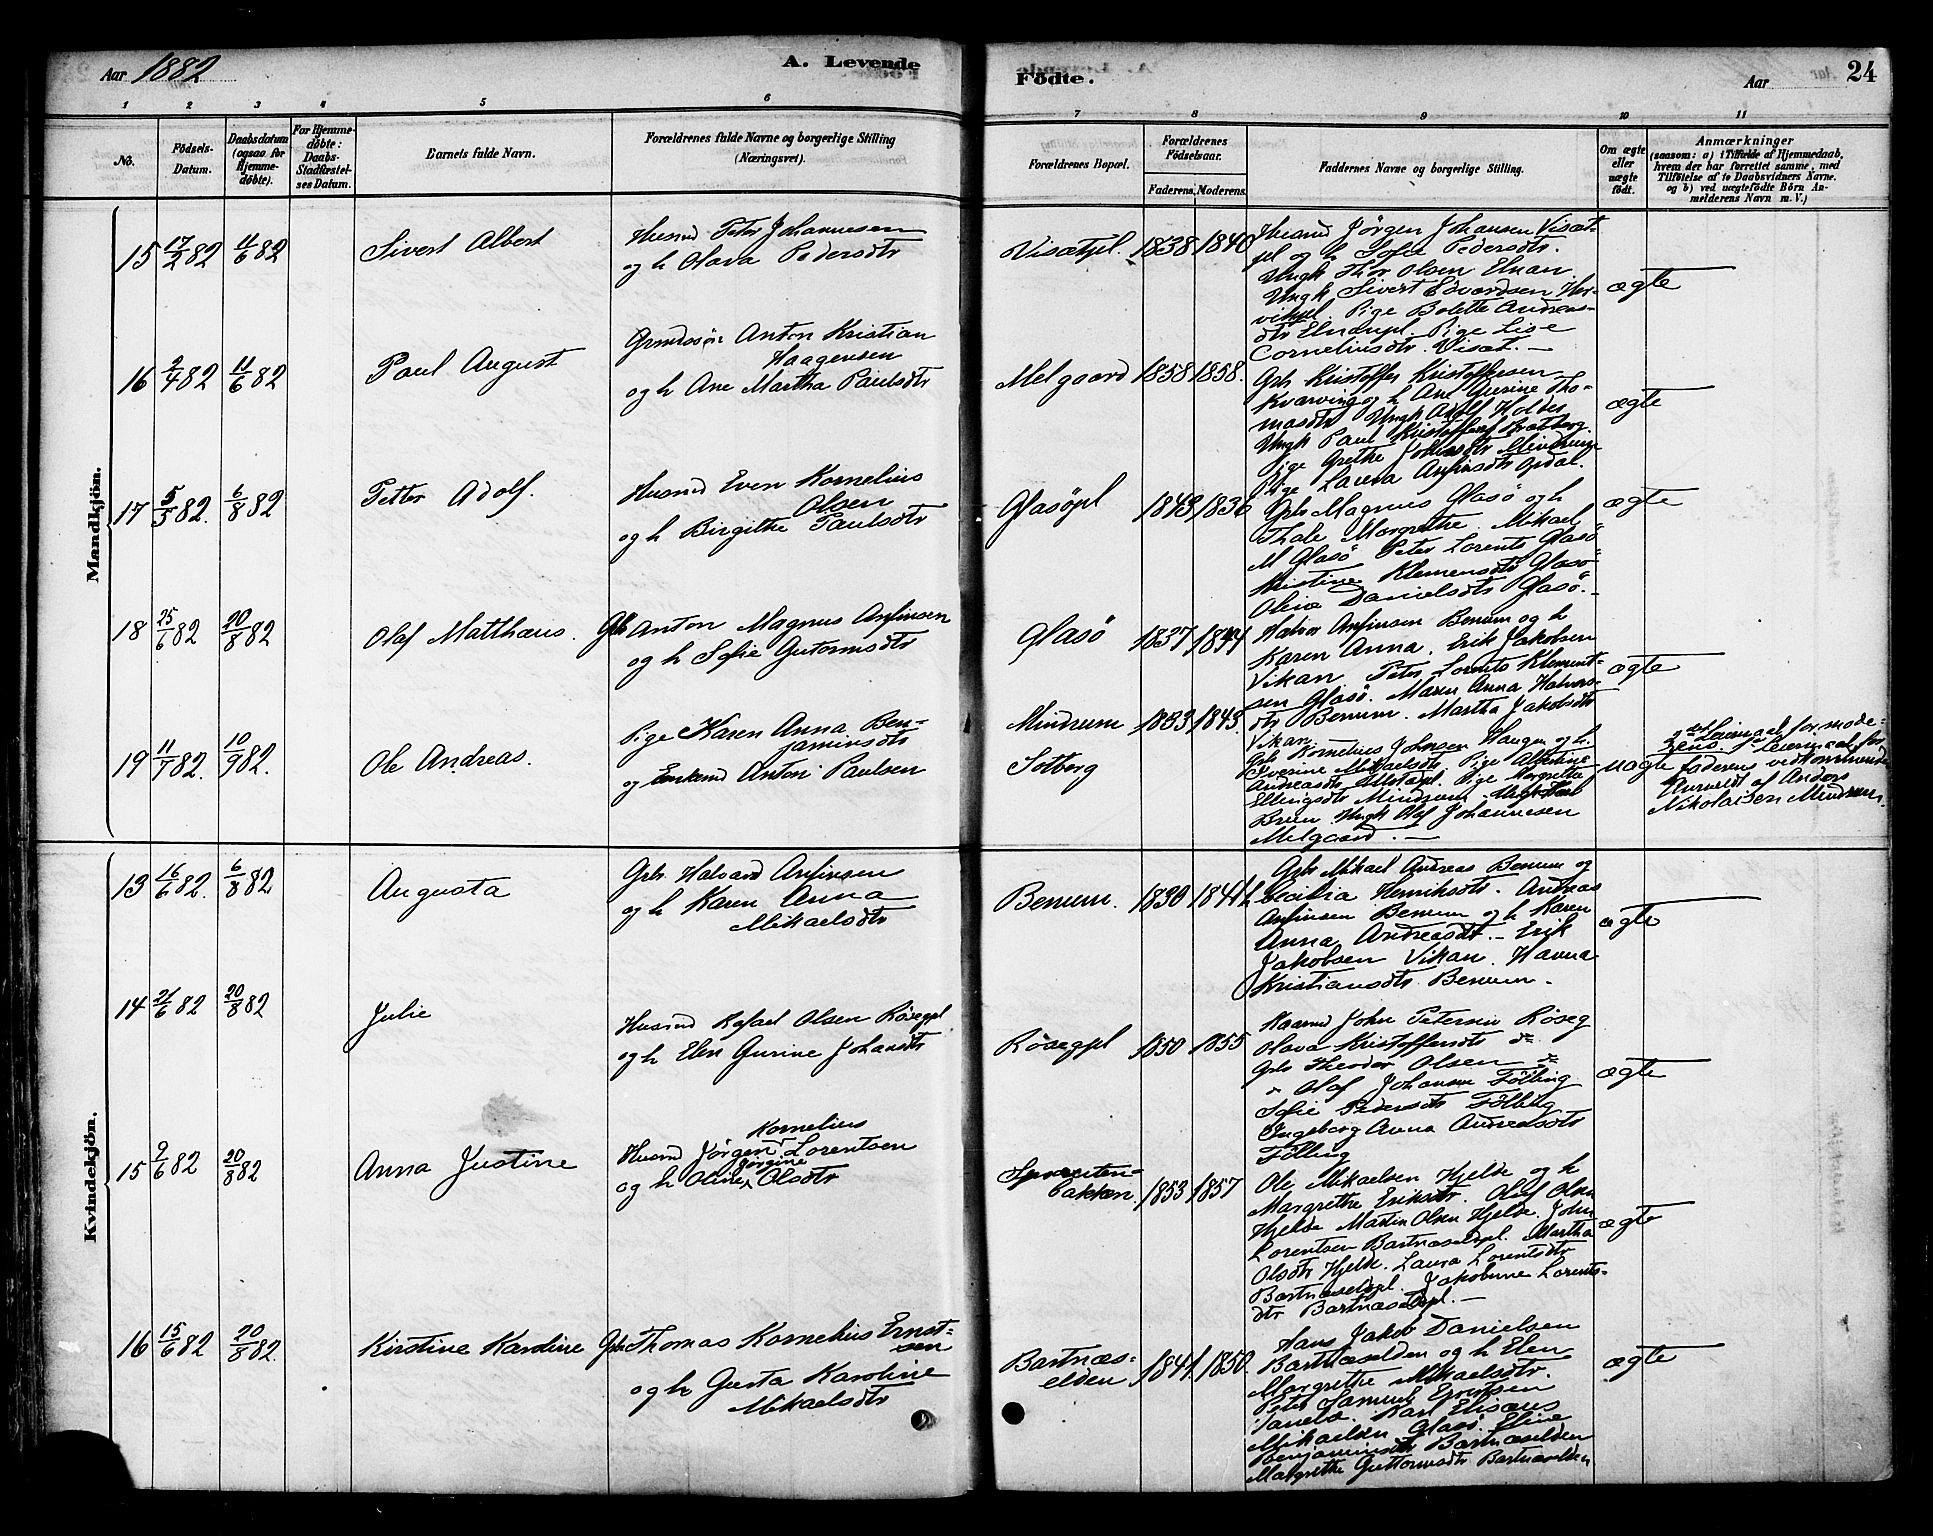 Aar 1882
A. Levende
Födte.
Aar 24
1 2 3 4 5 6 7 8 9 10 11
No.
Födsels-
Datum.
Daabsdatum
(ogsaa for
Hjemme-
døbte).
For Hjemme-
døbte:
Daabs-
Stadfæstel-
ses Datum.
Barnets fulde Navn.
Forældrenes fulde Navne og borgerlige Stilling
(Næringsvei).
Forældrenes Bopæl.
Forældrenes
Födselsaar.
Faderens. Moderens.
Faddernes Navne og borgerlige Stilling.
Om ægte
eller
uægte
födt.
Anmærkninger
(saasom: a) i Tilfælde af Hjemmedaab,
hvem der har forrettet samme, med
Tilföielse af to Daabsvidners Navne,
og b) ved uægtefödte Börn An-
melderens Navn m. V.)
Mandkjön.
15 17/2 82 11/6 82
Sivert Albert
Husmd Peter Johannesen
og h Olava Pedersdtr
Visætpl. 1838 1840
Husmd Jørgen Johansen Visæt-
pl og h Sofie Pedersdtr.
Ungk Thor Olsen Elnan
Ungk Sivert Edvardsen
Pige Bolette Andreas-
dtr Elnanpl. Pige Lise
Corneliusdtr. Visæt.
ægte
16 2/4 82 11/6 82
Paul August
Anton Kristian
Haagensen
og h Ane Martha Paulsdtr
Melgaard 1858 1858.
Gbr Kristoffer Kristoffersen
Kvarving og h Ane Tho-
masdtr Ungk Adolf
Ungk Paul Kristoffersen
Pige Grethe Mindrum
Pige Laura Anfinsdtr Opdal.
ægte
17 5/5 82. 6/8 82
Petter Adolf.
Husmd Even Kornelius
Olsen
og h Birgithe Paulsdtr
Glasöpl 1843 1836
Gbr Magnus Glasö og h
Thale Margrethe. Mikael
M Glasö Peter Lorents Glasö
Kristine Klemensdtr Glasö
Oline Danielsdtr Glasö.
ægte
18 25/6 82 20/8 82
Olaf Matthæus.
Gbr Anton Magnus Anfinsen
og h Sofie Gutormsdtr
Glasö 1837 1844
Halvor Anfinsen Benum og h
Karen Anna. Erik Jakobsen
Vikan Peter Lorents Klement-
sen Glasö. Maren Anna Halvors-
dtr Benum. Martha Jakobsdtr
Vikan.
ægte
19 11/7 82. 10/9 82.
Ole Andreas.
Pige Karen Anna Ben-
jaminsdtr
og Enkemd Anton Paulsen
Mindrum
Solberg
1833 1843.
Gbr Kornelius Johnsen Haugan og h.
Iverine Mikaelsdtr. Pige Albertine
Andreasdtr Pige Margrethe
Ellingsdtr Mindrum
Ungk Olaf Johannesen
Melgaard.
uægte
2det Leiermaal for mode-
rens. Leiermaal for
faderens vedkommende
Anmeldt af Anders
Nikolaisen Mindrum.
Kvindekjön.
13 16/6 82. 6/8 82
Augusta
Gbr. Halvard Anfinsen
og h Karen Anna
Mikaelsdtr
Benum. 1830 1841
Gbr Mikael Andreas Benum og
h Cecilia Henriksdtr. Andreas
Anfinsen Benum og h Karen
Anna Andreasdtr. Erik
Jakobsen Vikan. Hanna
Kristiansdtr. Benum.
ægte
14 21/6 82 20/8 82
Julie
Husmd Rafael Olsen Røsegpl
og h Elen Gurine Johansdtr
Røsegpl 1850 1855
Kaarmd John Petersen Røseg
Olava Kristoffersdtr do
Gbr Theodor Olsen do
" Olaf Johansen Følling
Sofie Pedersdtr Følling
Ingeborg Anna Andreasdtr
Følling
ægte
15 2/6 82 20/8 82
Anna Justine
Kornelius
Husmd Jørgen Lorentsen
Jørgine
og h Oline Olsdtr
bakken. 1853 1857
Ole Mikaelsen Hjelde og h
Margrethe Eriksdtr. Olaf Olsen
Hjelde Martin Olsen Hjelde. John
Lorentsen Bartnæseldpl. Martha
Olsdtr Hjelde. Laura Lorentsdtr
Bartnæseldpl. Jakobine Lorents-
dtr Bartnæseldpl.
ægte
16 15/6 82 20/8 82.
Kirstine Karoline
Gbr Thomas Kornelius Ernst-
sen
og h Gusta Karoline
Mikaelsdtr
Bartnæs-
elden 1841. 1850.
Hans Jakob Danielsen
Bartnæselden og h Elen
Margrethe Mikaelsdtr.
Peter Samuel Erntsen
Karl Elisæus
Mikaelsen Glasö. Eline
Benjaminsdtr Bartnæselden
Margrethe Guttormsdtr Bartnæselden